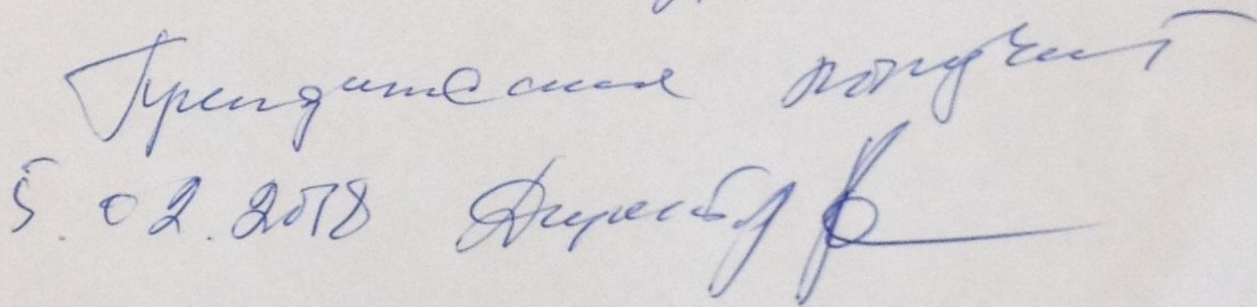 Приглашение получил
5.02.2018 Директор